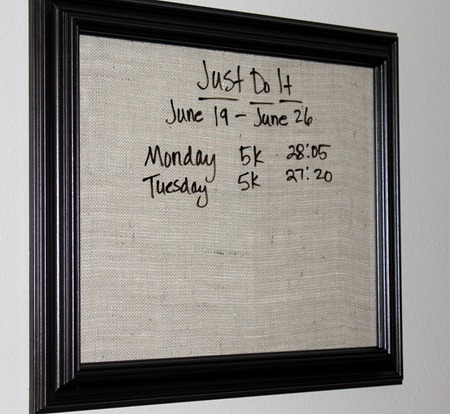 Just Do It
June 19 - June 26
Monday 5k 28:05
Tuesday 5k 27:20